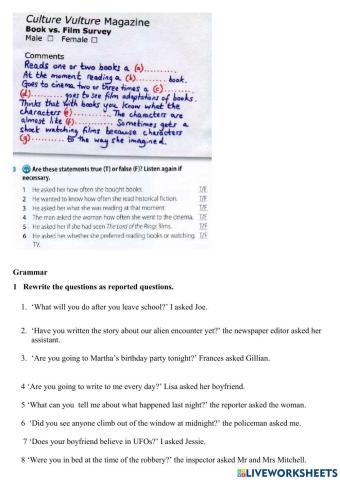 Culture Vulture Magazine
Book vs. Film Survey
Male □ Female □
Comments
Reads one or two books a (a)..........
At the moment reading a (b).......... book.
Goes to cinema two or three times a (c)..........
(d).......... goes to see film adaptations of books.
Thinks that with books you know what the
characters (e).......... The characters are
almost like (f).......... Sometimes gets a
shock watching films because characters
(g).......... to the way she imagined.
3 Are these statements true (T) or false (F)? Listen again if
necessary.
1 He asked her how often she bought books. T/F
2 He wanted to know how often she read historical fiction. T/F
3 He asked her what she was reading at that moment. T/F
4 The man asked the woman how often she went to the cinema. T/F
5 He asked her if she had seen The Lord of the Rings films. T/F
6 He asked her whether she preferred reading books or watching T/F
TV.
Grammar
1 Rewrite the questions as reported questions.
1. ‘What will you do after you leave school?’ I asked Joe.
2. ‘Have you written the story about our alien encounter yet?’ the newspaper editor asked her
assistant.
3. ‘Are you going to Martha’s birthday party tonight?’ Frances asked Gillian.
4 ‘Are you going to write to me every day?’ Lisa asked her boyfriend.
5 ‘What can you tell me about what happened last night?’ the reporter asked the woman.
6 ‘Did you see anyone climb out of the window at midnight?’ the policeman asked me.
7 ‘Does your boyfriend believe in UFOs?’ I asked Jessie.
8 ‘Were you in bed at the time of the robbery?’ the inspector asked Mr and Mrs Mitchell.
LIVEWORKSHEETS